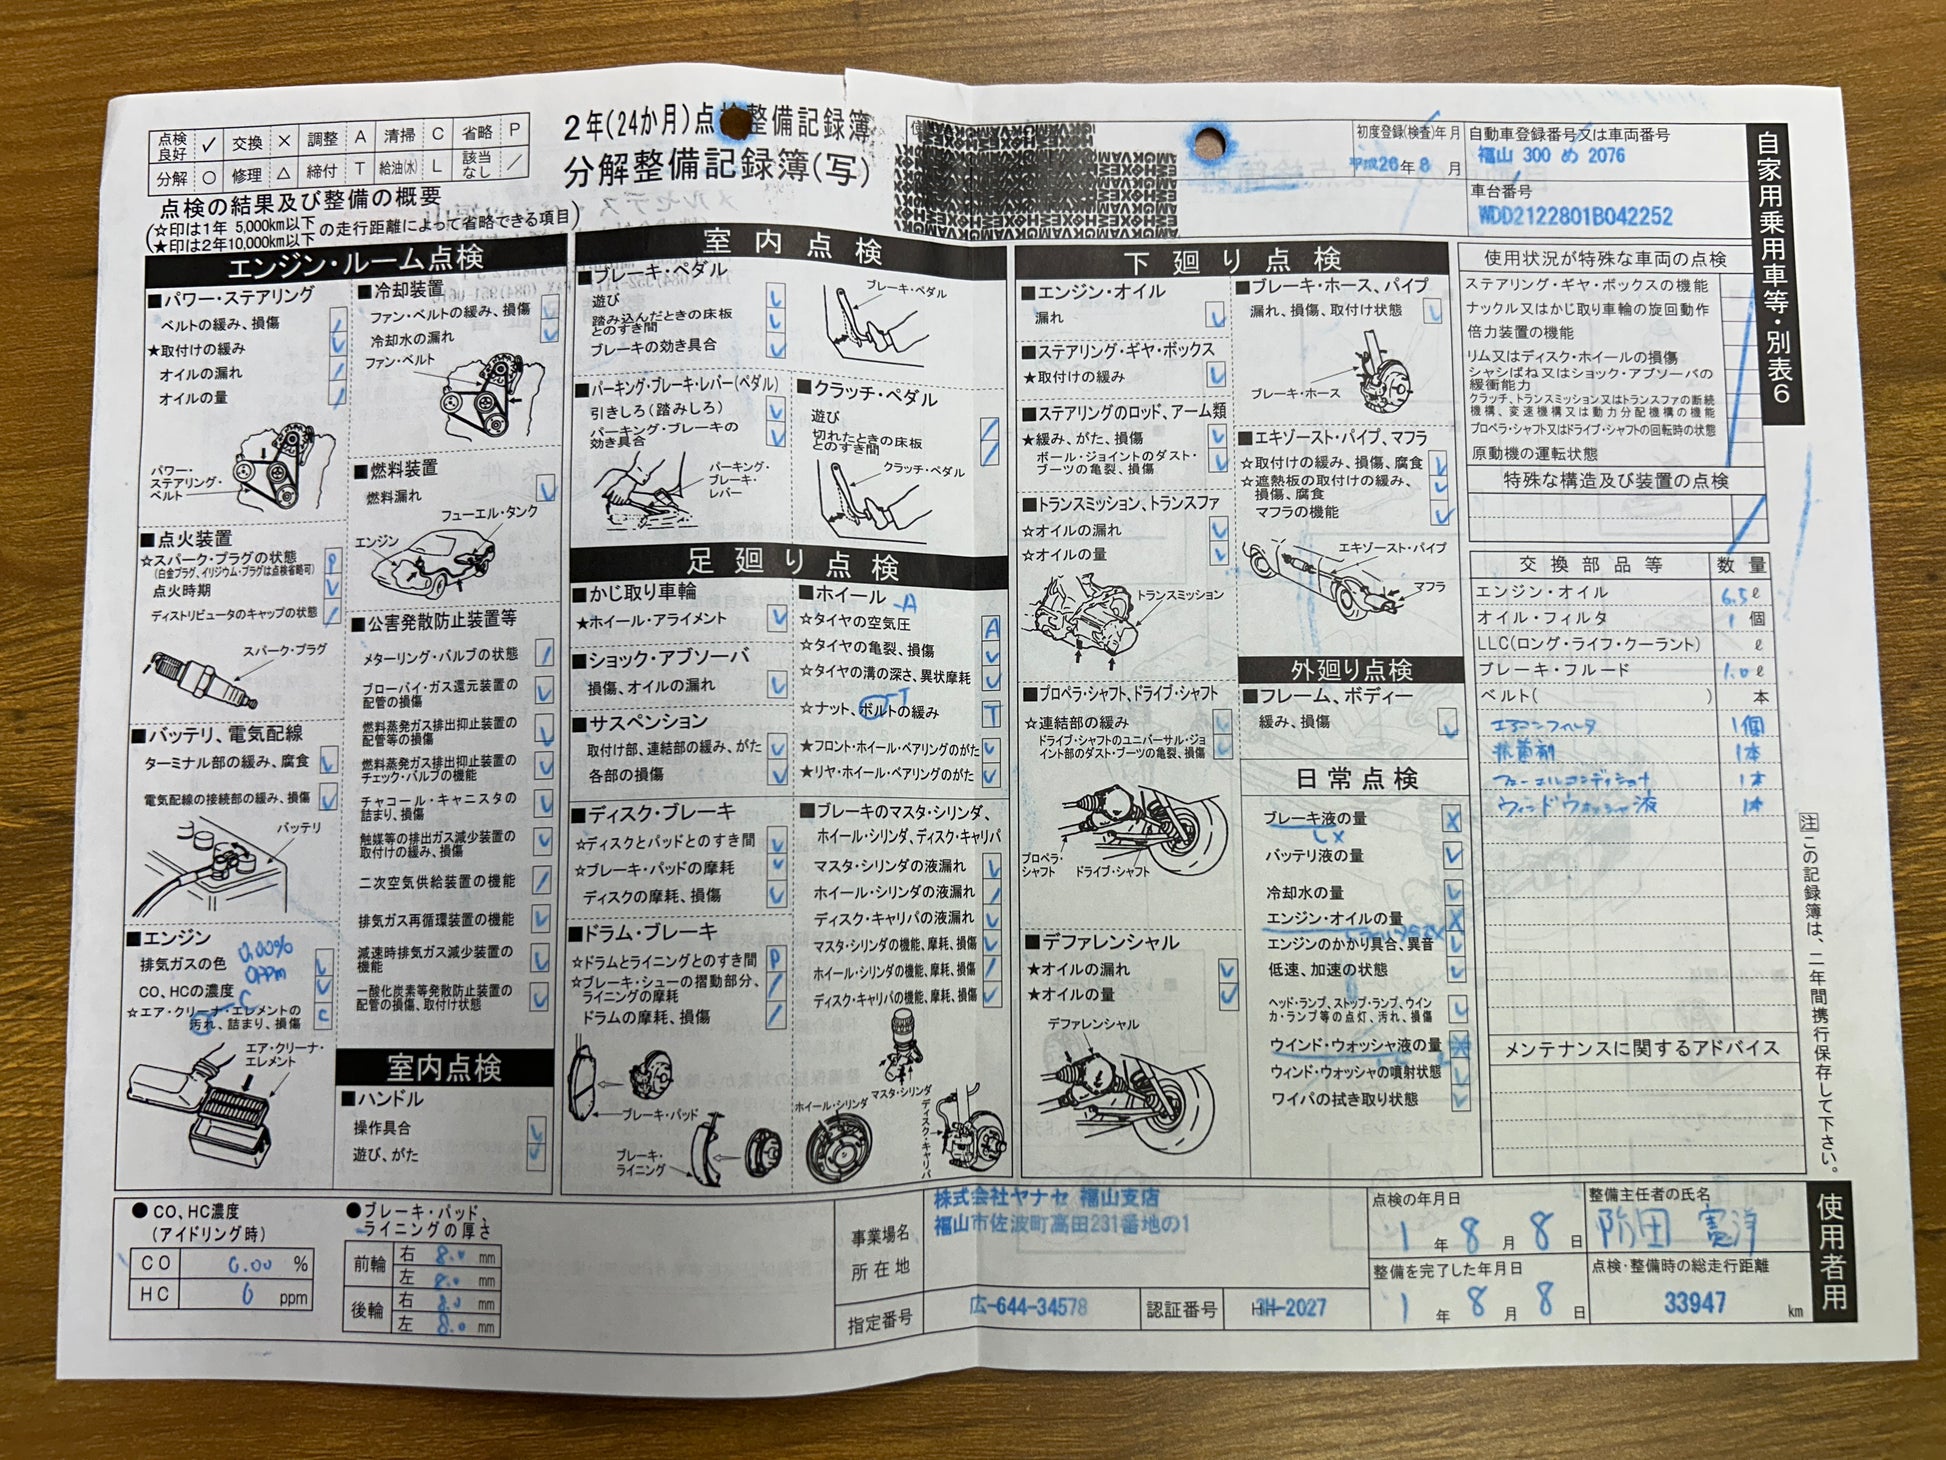 点検良好 ✓ 交換 × 調整 A 清掃 C 省略 P
分解 ○ 修理 △ 締付 T 給油(水) L 該当なし /
2年(24か月)点検整備記録簿
分解整備記録簿(写)
初度登録(検査)年月
平成26年8月
自動車登録番号又は車両番号
福山 300 め 2076
車台番号
WDD2122801B042252
自家用乗用車等・別表6
点検の結果及び整備の概要
(☆印は1年 5,000km以下
★印は2年10,000km以下 の走行距離によって省略できる項目)
エンジン・ルーム点検
■パワー・ステアリング
ベルトの緩み、損傷 /
★取付けの緩み ✓
オイルの漏れ /
オイルの量 /
パワー・ステアリング・ベルト
■点火装置
☆スパーク・プラグの状態 P
(白金プラグ、イリジウム・プラグは点検省略可)
点火時期 ✓
ディストリビュータのキャップの状態 /
スパーク・プラグ
■バッテリ、電気配線
ターミナル部の緩み、腐食 ✓
電気配線の接続部の緩み、損傷 ✓
バッテリ
■エンジン
0.00%
0ppm
排気ガスの色 ✓
CO、HCの濃度 ✓
☆エア・クリーナ・エレメントの汚れ、詰まり、損傷 C
エア・クリーナ・エレメント
■冷却装置
ファン・ベルトの緩み、損傷 ✓
冷却水の漏れ ✓
ファン・ベルト
■燃料装置
燃料漏れ ✓
フューエル・タンク
エンジン
■公害発散防止装置等
メターリング・バルブの状態 /
ブローバイ・ガス還元装置の配管の損傷 ✓
燃料蒸発ガス排出抑止装置の配管等の損傷 ✓
燃料蒸発ガス排出抑止装置のチェック・バルブの機能 ✓
チャコール・キャニスタの詰まり、損傷 ✓
触媒等の排出ガス減少装置の取付けの緩み、損傷 ✓
二次空気供給装置の機能 /
排気ガス再循環装置の機能 ✓
減速時排気ガス減少装置の機能 ✓
一酸化炭素等発散防止装置の配管の損傷、取付け状態 ✓
室内点検
■ハンドル
操作具合 ✓
遊び、がた ✓
室内点検
■ブレーキ・ペダル
遊び ✓
踏み込んだときの床板とのすき間 ✓
ブレーキの効き具合 ✓
ブレーキ・ペダル
■パーキング・ブレーキ・レバー(ペダル)
引きしろ(踏みしろ) ✓
パーキング・ブレーキの効き具合 ✓
パーキング・ブレーキ・レバー
■クラッチ・ペダル
遊び /
切れたときの床板とのすき間 /
クラッチ・ペダル
足廻り点検
■かじ取り車輪
★ホイール・アライメント ✓
■ショック・アブソーバ
損傷、オイルの漏れ ✓
■サスペンション
取付け部、連結部の緩み、がた ✓
各部の損傷 ✓
■ディスク・ブレーキ
☆ディスクとパッドとのすき間 ✓
☆ブレーキ・パッドの摩耗 ✓
ディスクの摩耗、損傷 ✓
■ドラム・ブレーキ
☆ドラムとライニングとのすき間 P
☆ブレーキ・シューの摺動部分、ライニングの摩耗 /
ドラムの摩耗、損傷 /
ブレーキ・パッド
ブレーキ・ライニング
■ホイール
A
☆タイヤの空気圧 A
☆タイヤの亀裂、損傷 ✓
☆タイヤの溝の深さ、異状摩耗 ✓
☆ナット、ボルトの緩み T
★フロント・ホイール・ベアリングのがた ✓
★リヤ・ホイール・ベアリングのがた ✓
■ブレーキのマスタ・シリンダ、
ホイール・シリンダ、ディスク・キャリパ
マスタ・シリンダの液漏れ ✓
ホイール・シリンダの液漏れ /
ディスク・キャリパの液漏れ ✓
マスタ・シリンダの機能、摩耗、損傷 ✓
ホイール・シリンダの機能、摩耗、損傷 /
ディスク・キャリパの機能、摩耗、損傷 ✓
マスタ・シリンダ
ホイール・シリンダ
ディスク・キャリパ
下廻り点検
■エンジン・オイル
漏れ ✓
■ステアリング・ギヤ・ボックス
★取付けの緩み ✓
■ステアリングのロッド、アーム類
★緩み、がた、損傷 ✓
ボール・ジョイントのダスト・ブーツの亀裂、損傷 ✓
■トランスミッション、トランスファ
☆オイルの漏れ ✓
☆オイルの量 ✓
トランスミッション
■プロペラ・シャフト、ドライブ・シャフト
☆連結部の緩み ✓
ドライブ・シャフトのユニバーサル・ジョイント部のダスト・ブーツの亀裂、損傷 ✓
プロペラ・シャフト
ドライブ・シャフト
■デファレンシャル
★オイルの漏れ ✓
★オイルの量 ✓
デファレンシャル
■ブレーキ・ホース、パイプ
漏れ、損傷、取付け状態 ✓
ブレーキ・ホース
■エキゾースト・パイプ、マフラ
☆取付けの緩み、損傷、腐食 ✓
☆遮熱板の取付けの緩み、損傷、腐食 ✓
マフラの機能 ✓
エキゾースト・パイプ
マフラ
外廻り点検
■フレーム、ボディー
緩み、損傷 ✓
日常点検
ブレーキ液の量 ×
バッテリ液の量 ✓
冷却水の量 ✓
エンジン・オイルの量 ×
エンジンのかかり具合、異音 ✓
低速、加速の状態 ✓
ヘッド・ランプ、ストップ・ランプ、ウインカ・ランプ等の点灯、汚れ、損傷 ✓
ウインド・ウォッシャ液の量
ウィンド・ウォッシャの噴射状態 ✓
ワイパの拭き取り状態 ✓
使用状況が特殊な車両の点検
ステアリング・ギヤ・ボックスの機能
ナックル又はかじ取り車輪の旋回動作
倍力装置の機能
リム又はディスク・ホイールの損傷
シャシばね又はショック・アブソーバの緩衝能力
クラッチ、トランスミッション又はトランスファの断続機構、変速機構又は動力分配機構の機能
プロペラ・シャフト又はドライブ・シャフトの回転時の状態
原動機の運転状態
特殊な構造及び装置の点検
交換部品等 数量
エンジン・オイル 6.5ℓ
オイル・フィルタ 1個
LLC(ロング・ライフ・クーラント) ℓ
ブレーキ・フルード 1.0ℓ
ベルト( ) 本
エアコンフィルタ 1個
抗菌剤 1本
フューエルコンディショナ 1本
ウィンドウォッシャ液 1本
メンテナンスに関するアドバイス
注 この記録簿は、二年間携行保存して下さい。
●CO、HC濃度
(アイドリング時)
CO 0.00 %
HC 0 ppm
●ブレーキ・パッド、ライニングの厚さ
前輪 右 8.0 mm
左 8.0 mm
後輪 右 8.0 mm
左 8.0 mm
事業場名
所在地
株式会社ヤナセ 福山支店
福山市佐波町高田231番地の1
指定番号 広-644-34578 認証番号 3H-2027
点検の年月日
1年8月8日
整備を完了した年月日
1年8月8日
整備主任者の氏名
点検・整備時の総走行距離
33947 km
使用者用